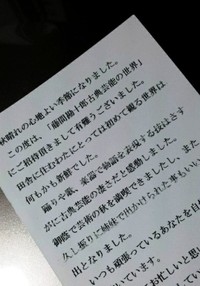 秋晴れの心地よい季節になりました。
この度は、「藤間勘十郎古典芸能の世界」
にご招待頂きまして有難うございました。
田舎に住むわたにとっては初めて観る世界は
何もかも新鮮でした。
踊りや歌、楽器で物語を表現する技はさす
がに古典芸能の凄さだと感動しました。
御蔭で芸術の秋を満喫できましたし、また
久し振りに姉妹で出かけられた事もいい
出となりました。
いつも頑張っているあなたを自
ています。
お忙しいと思